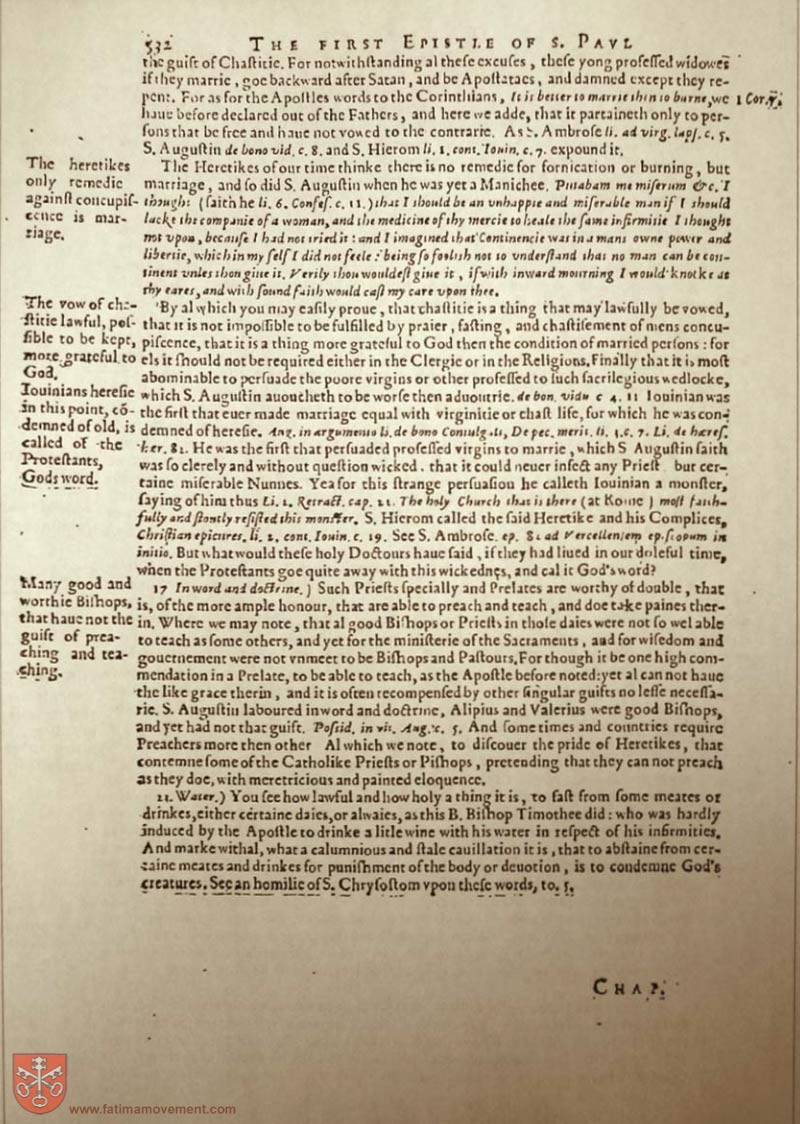 532 THE FIRST EPISTLE OF S. PAVL
the guift of Chaſtitie. For notwithſtanding al theſe excuſes, theſe yong profeſſed widowes
if they marrie, goe backward after Satan, and be Apoſtataes, and damned except they re-
pent. For as for the Apoſtles words to the Corinthians, It is better to marrie then to burne, we
1 Cor. 7.
haue before declared out of the Fathers, and here we adde, that it partaineth only to per-
ſons that be free and haue not vowed to the contrarie. As S. Ambroſe li. ad virg. lapſ. c. 5.
S. Auguſtin de bono vid. c. 8. and S. Hierom li. 1. cont. Iouin. c. 7. expound it.
The heretikes
only remedie
againſt concupiſ-
cence is mar-
riage.
The Heretikes of our time thinke there is no remedie for fornication or burning, but
marriage, and ſo did S. Auguſtin when he was yet a Manichee. Putabam me miſerum &c. I
thought (ſaith he li. 6. Confeſ. c. 11.) that I should be an vnhappie and miſerable man if I should
lacke the companie of a woman, and the medicine of thy mercie to heale the ſame infirmitie I thought
not vpon, becauſe I had not tried it: and I imagined that Continencie was in a mans owne power and
libertie, which in my ſelf I did not feele: being ſo foolish not to vnderſtand that no man can be con-
tinent vnles thou giue it. Verily thou wouldeſt giue it, if with inward mourning I would knocke at
thy eares, and with ſound faith would caſt my care vpon thee.
The vow of cha-
ſtitie lawful, poſ-
ſible to be kept,
more grateful to
God.
Iouinians hereſie
in this point, cō-
demned of old, is
called of the
Proteſtants,
Gods word.
By al which you may eaſily proue, that chaſtitie is a thing that may lawfully be vowed,
that it is not impoſſible to be fulfilled by praier, faſting, and chaſtiſement of mens concu-
piſcence, that it is a thing more grateful to God then the condition of married perſons: for
els it ſhould not be required either in the Clergie or in the Religious. Finally that it is moſt
abominable to perſuade the poore virgins or other profeſſed to ſuch ſacrilegious wedlocke,
which S. Auguſtin auoucheth to be worſe then aduoutrie. de bon. vidu c 4. 11 Iouinian was
the firſt that euer made marriage equal with virginitie or chaſt life, for which he was con-
demned of hereſie. Aug. in argumento li. de bono Coniugali, De pec. merit. li. 3. c. 7. Li. de hæreſ.
her. 82. He was the firſt that perſuaded profeſſed virgins to marrie, which S Auguſtin ſaith
was ſo clerely and without queſtion wicked, that it could neuer infect any Prieſt but cer-
taine miſerable Nunnes. Yea for this ſtrange perſuaſiou he calleth Iouinian a monſter,
ſaying of him thus Li. 2. Retract. cap. 22. The holy Church that is there (at Rome) moſt faith-
fully and ſtoutly reſiſted this monſter. S. Hierom called the ſaid Heretike and his Complices,
Chriſtian epicures. li. 2. cont. Iouin. c. 19. See S. Ambroſe. ep. 82 ad Vercellenſem epiſcopum in
initio. But what would theſe holy Doctours haue ſaid, if they had liued in our doleful time,
when the Proteſtants goe quite away with this wickednes, and cal it God's word?
Many good and
worthie Biſhops,
that haue not the
guift of prea-
ching and tea-
ching.
17 In word and doctrine.) Such Prieſts ſpecially and Prelates are worthy of double, that
is, of the more ample honour, that are able to preach and teach, and doe take paines ther-
in. Where we may note, that al good Biſhops or Prieſts in thoſe daies were not ſo wel able
to teach as ſome others, and yet for the miniſterie of the Sacraments, and for wiſedom and
gouernement were not vnmeet to be Biſhops and Paſtours. For though it be one high com-
mendation in a Prelate, to be able to teach, as the Apoſtle before noted: yet al can not haue
the like grace therin, and it is often recompenſed by other ſingular guifts no leſſe neceſſa-
rie. S. Auguſtin laboured in word and doctrine, Alipius and Valerius were good Biſhops,
and yet had not that guift. Poſſid. in vit. Aug. c. 5. And ſome times and countries require
Preachers more then other Al which we note, to diſcouer the pride of Heretikes, that
contemne ſome of the Catholike Prieſts or Piſhops, pretending that they can not preach
as they doe, with meretricious and painted eloquence.
23. Water.) You ſee how lawful and how holy a thing it is, to faſt from ſome meates or
drinkes, either certaine daies, or alwaies, as this B. Biſhop Timothee did: who was hardly
induced by the Apoſtle to drinke a litle wine with his water in reſpect of his infirmities.
And marke withal, what a calumnious and ſtale cauillation it is, that to abſtaine from cer-
taine meates and drinkes for puniſhment of the body or deuotion, is to condemne God's
creatures. See an homilie of S. Chryſoſtom vpon theſe words, to. 5.
CHAP.
www.fatimamovement.com